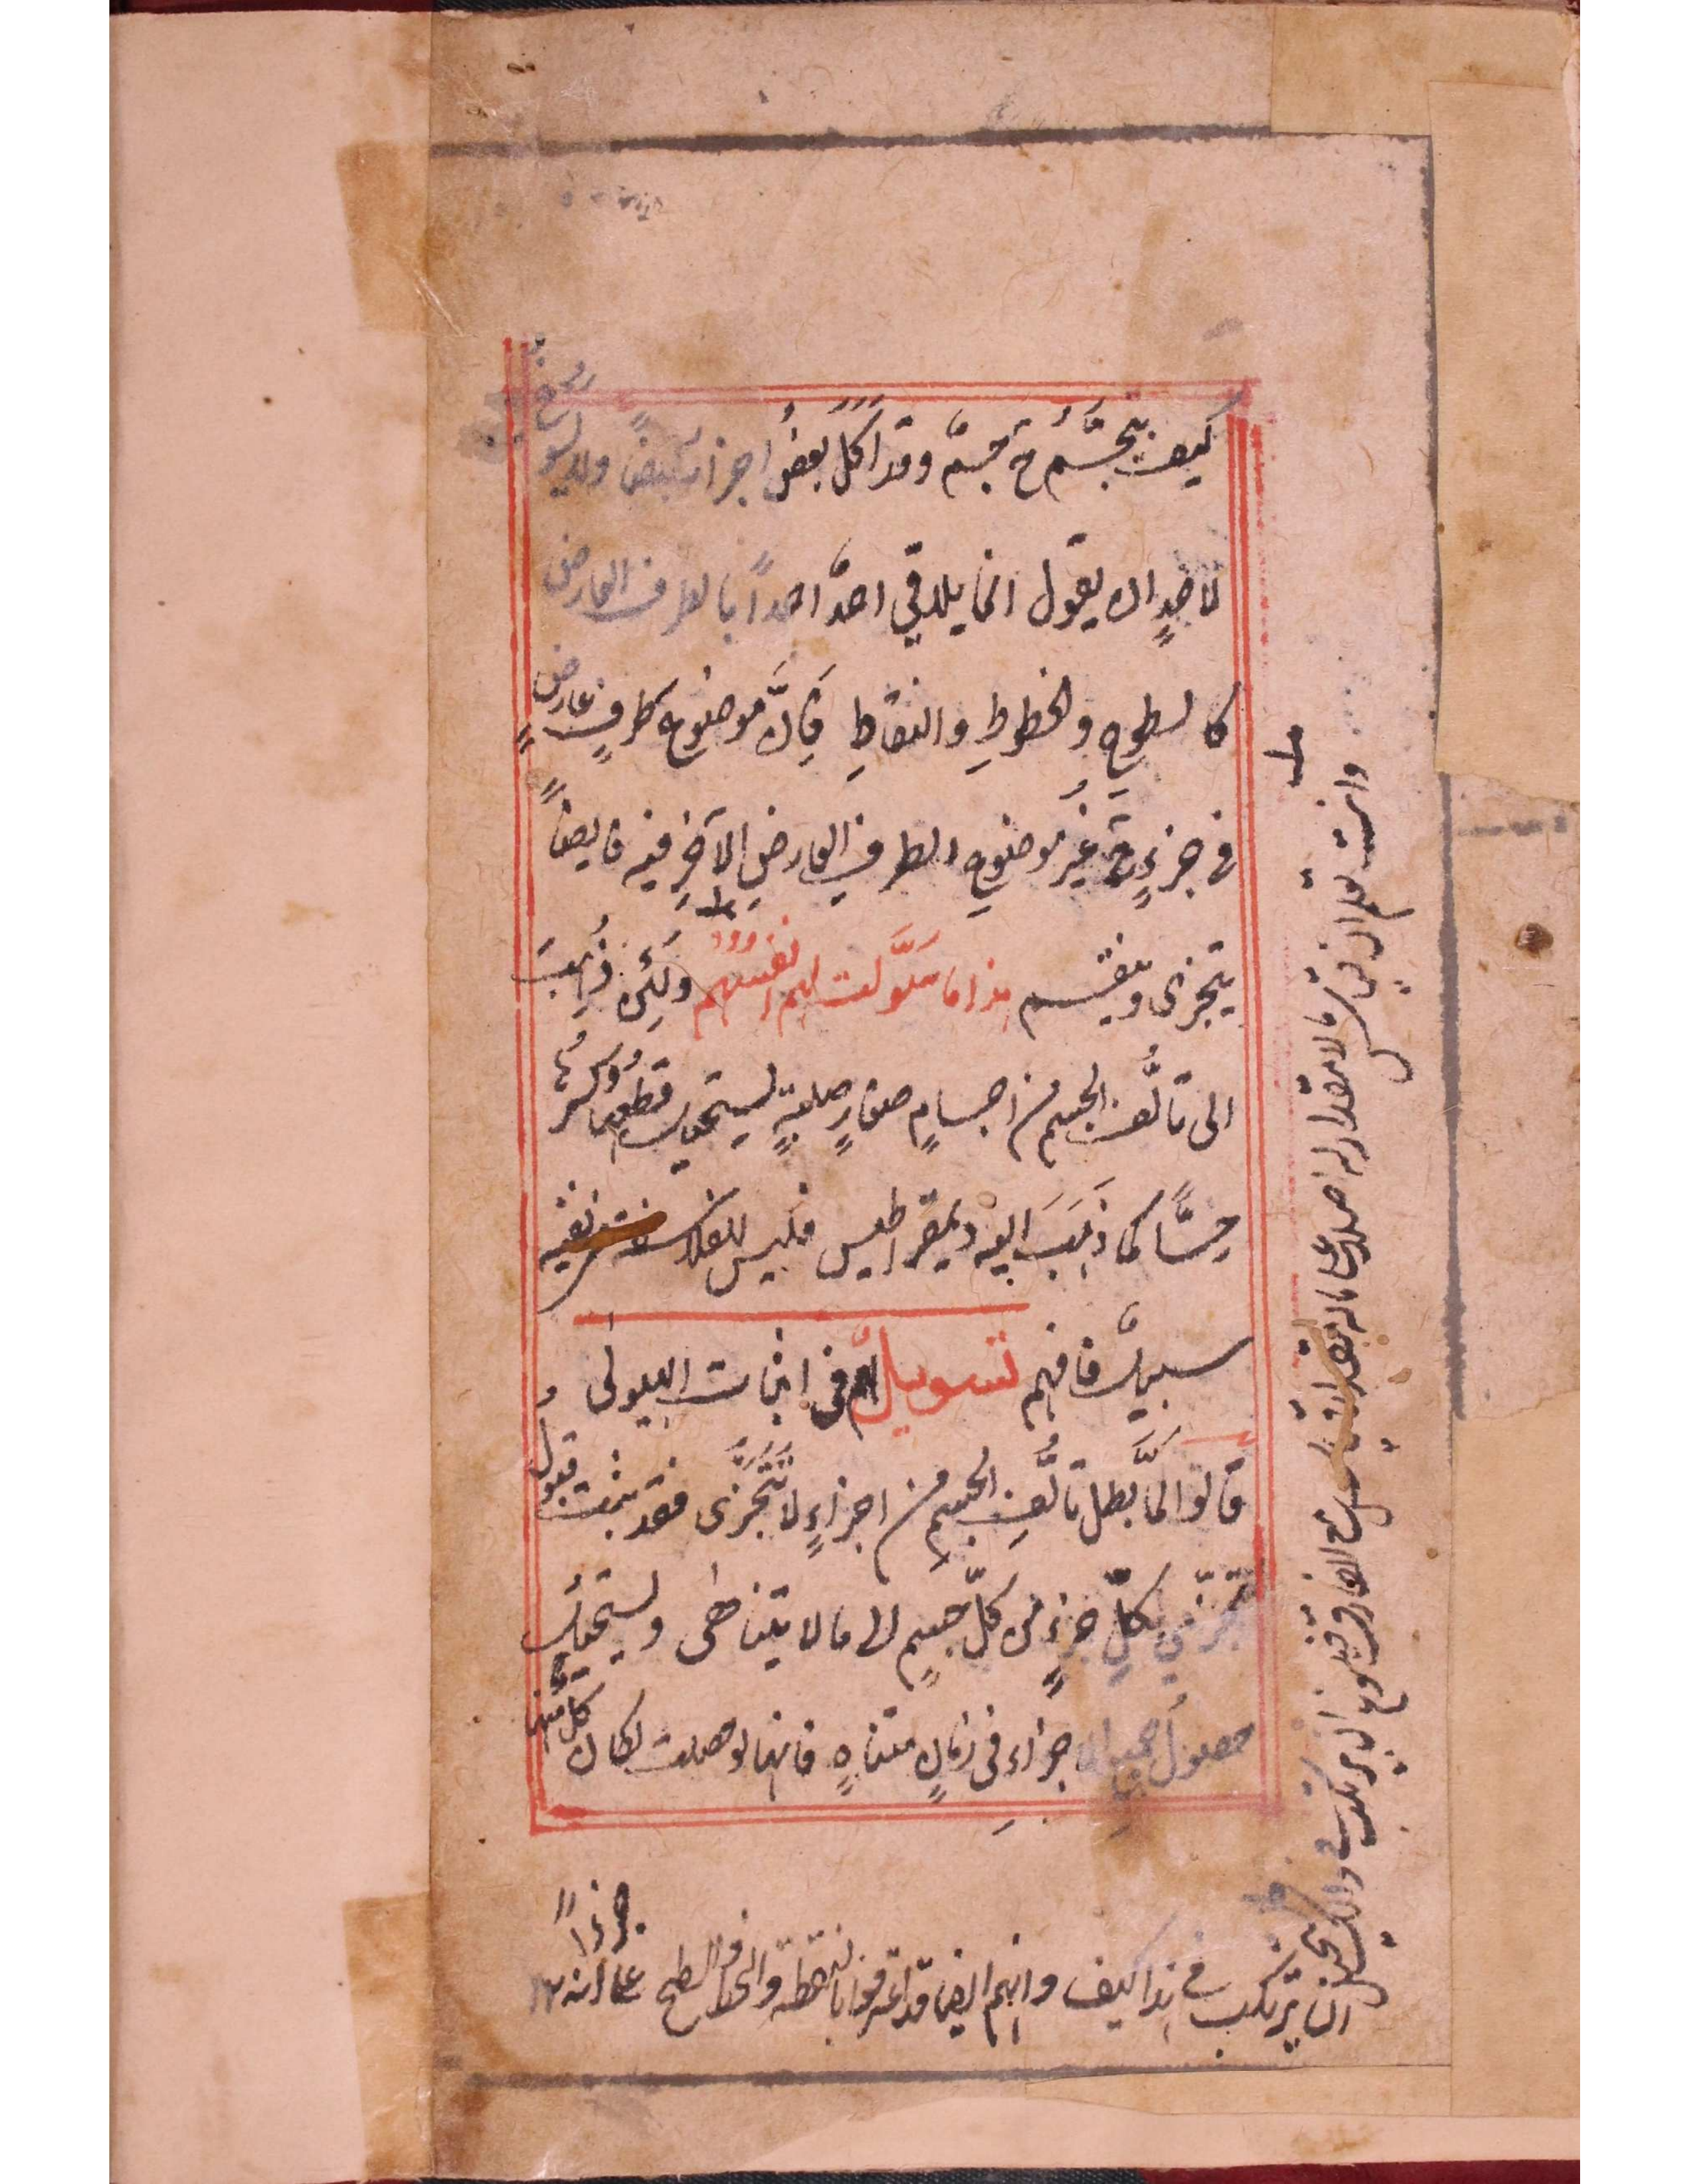 كيف يتجسَّمُ ح جسمٌ وقد اَكَلَ بعضُ اجزائه بعضًا ولا يسوغُ
لاحدٍ ان يقول انما يلاقي احدٌ احدًا بالطرف العارض
كالسطوحِ والخطوطِ والنقاطِ فَاِنَّ موضوع طرفٍ عارضٍ
فى جزءٍ ح غيرُ موضوعِ الطرف العارضِ الآخرِ فيه فايضًا
يتجزى وينقسم هذا ما سَوَّلت لهم انفسهم ولَئِن ذُهِبَ
الى تالُّف الجسم من اجسامٍ صغارٍ صلبةٍ يستحيل قطعُها وكسرُها
حِسًّا كما ذَهَبَ اليه ديمقراطيس فليس للفلاسفة نفيه
سبيلٌ فافهم تسويلٌ فى اثبات الهيولى
قالوا لمَّا بطل تالُّف الجسمِ من اجزاءٍ لا تَتَجَزَّى فقد ثبت قبولُ
تجزّي لكلِّ جزءٍ من كلّ جسمٍ الى ما لا يتناهى ويستحيل
حصولُ جميع الاجزاء فى زمانٍ متناهٍ فانها لو حصلت لكان كلٌّ منها
جزءًا
وانت تعلم ان قياس ما لا مقدار له اصلا على ما له مقدار قياس مع الفارق
ان يتركب هذا كيف وانهم ايضا قد اعترفوا بالنقطة والخط والسطح على انه ١٢